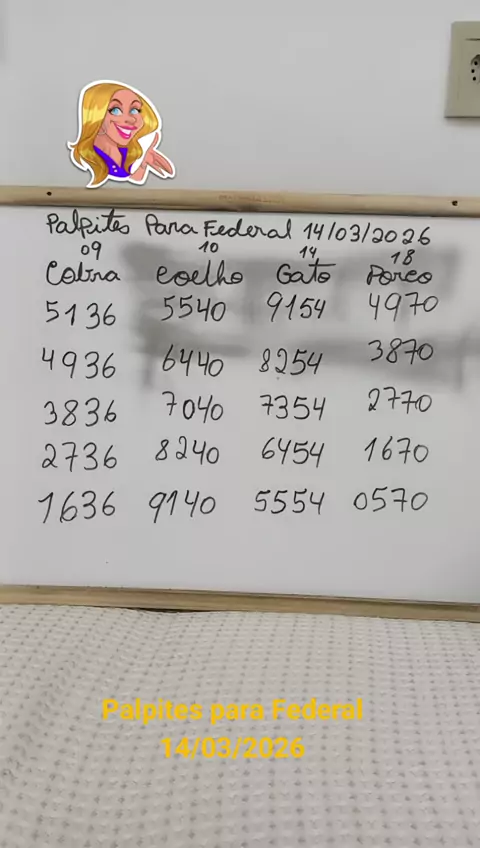 Palpites Para Federal 14/03/2026
09 10 14 18
Cobra Coelho Gato Porco
5136 5540 9154 4970
4936 6440 8254 3870
3836 7040 7354 2770
2736 8240 6454 1670
1636 9140 5554 0570
Palpites para Federal
14/03/2026